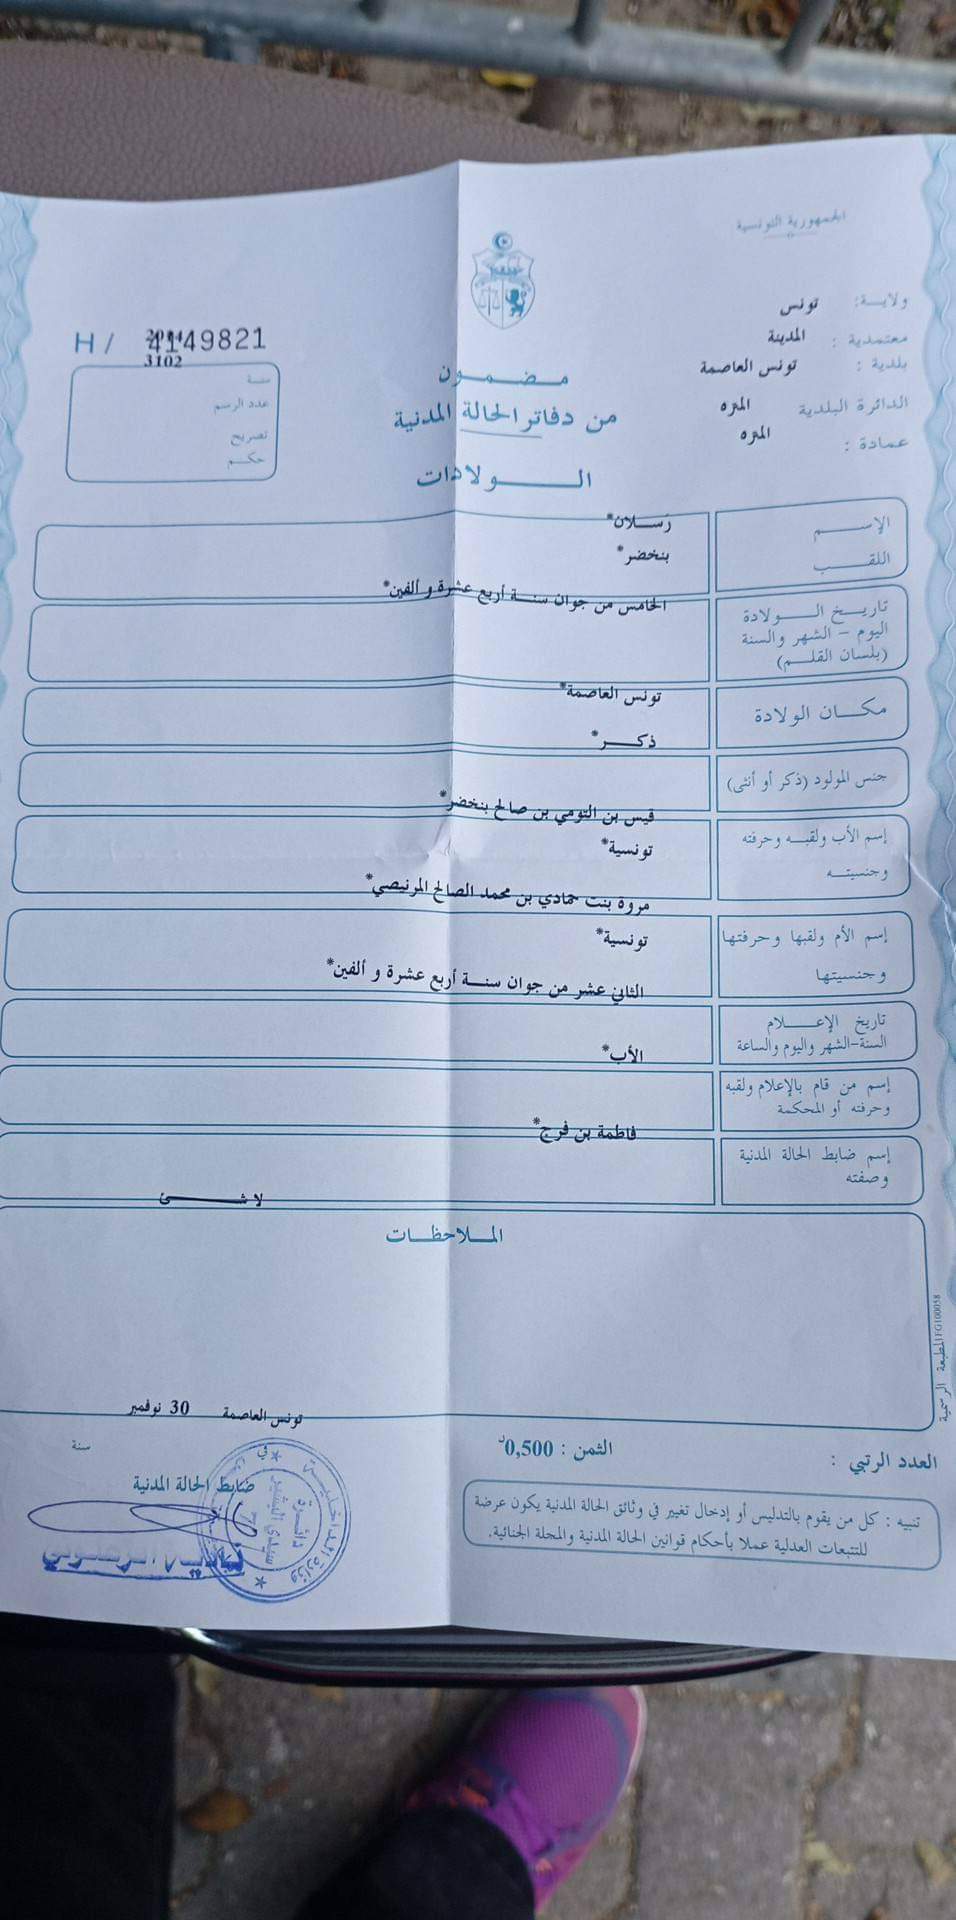 الجمهورية التونسية
ولايـــة: تونس
معتمدية : المدينة
بلدية : تونس العاصمة
الدائرة البلدية المتره
عمادة : المتره
H / 4149821
3102
سنة
عدد الرسم
تصريح
حكم
مضمون
من دفاتر الحالة المدنية
الولادات
الإسم رسلان*
اللقب بنخضر*
الخامس من جوان سنة أربع عشرة و ألفين*
تاريخ الولادة
اليوم – الشهر والسنة
(بلسان القلم)
تونس العاصمة*
مكان الولادة
ذكر*
جنس المولود (ذكر أو أنثى)
قيس بن التومي بن صالح بنخضر*
إسم الأب ولقبه وحرفته
تونسية*
وجنسيته
مروة بنت حمادي بن محمد الصالح المرنيصي*
إسم الأم ولقبها وحرفتها
تونسية*
وجنسيتها
الثاني عشر من جوان سنة أربع عشرة و ألفين*
تاريخ الإعلام
السنة-الشهر واليوم والساعة
الأب*
إسم من قام بالإعلام ولقبه
وحرفته أو المحكمة
فاطمة بن فرج*
إسم ضابط الحالة المدنية
وصفته
لا شئ
الملاحظات
المطبعة الرسمية FG100058
تونس العاصمة 30 نوفمبر
في
سنة
ضابط الحالة المدنية
دائرة
سيدي البشير
العدد الرتبي :
الثمن : 0,500د
تنبيه : كل من يقوم بالتدليس أو إدخال تغيير في وثائق الحالة المدنية يكون عرضة
للتتبعات العدلية عملا بأحكام قوانين الحالة المدنية والمجلة الجنائية.